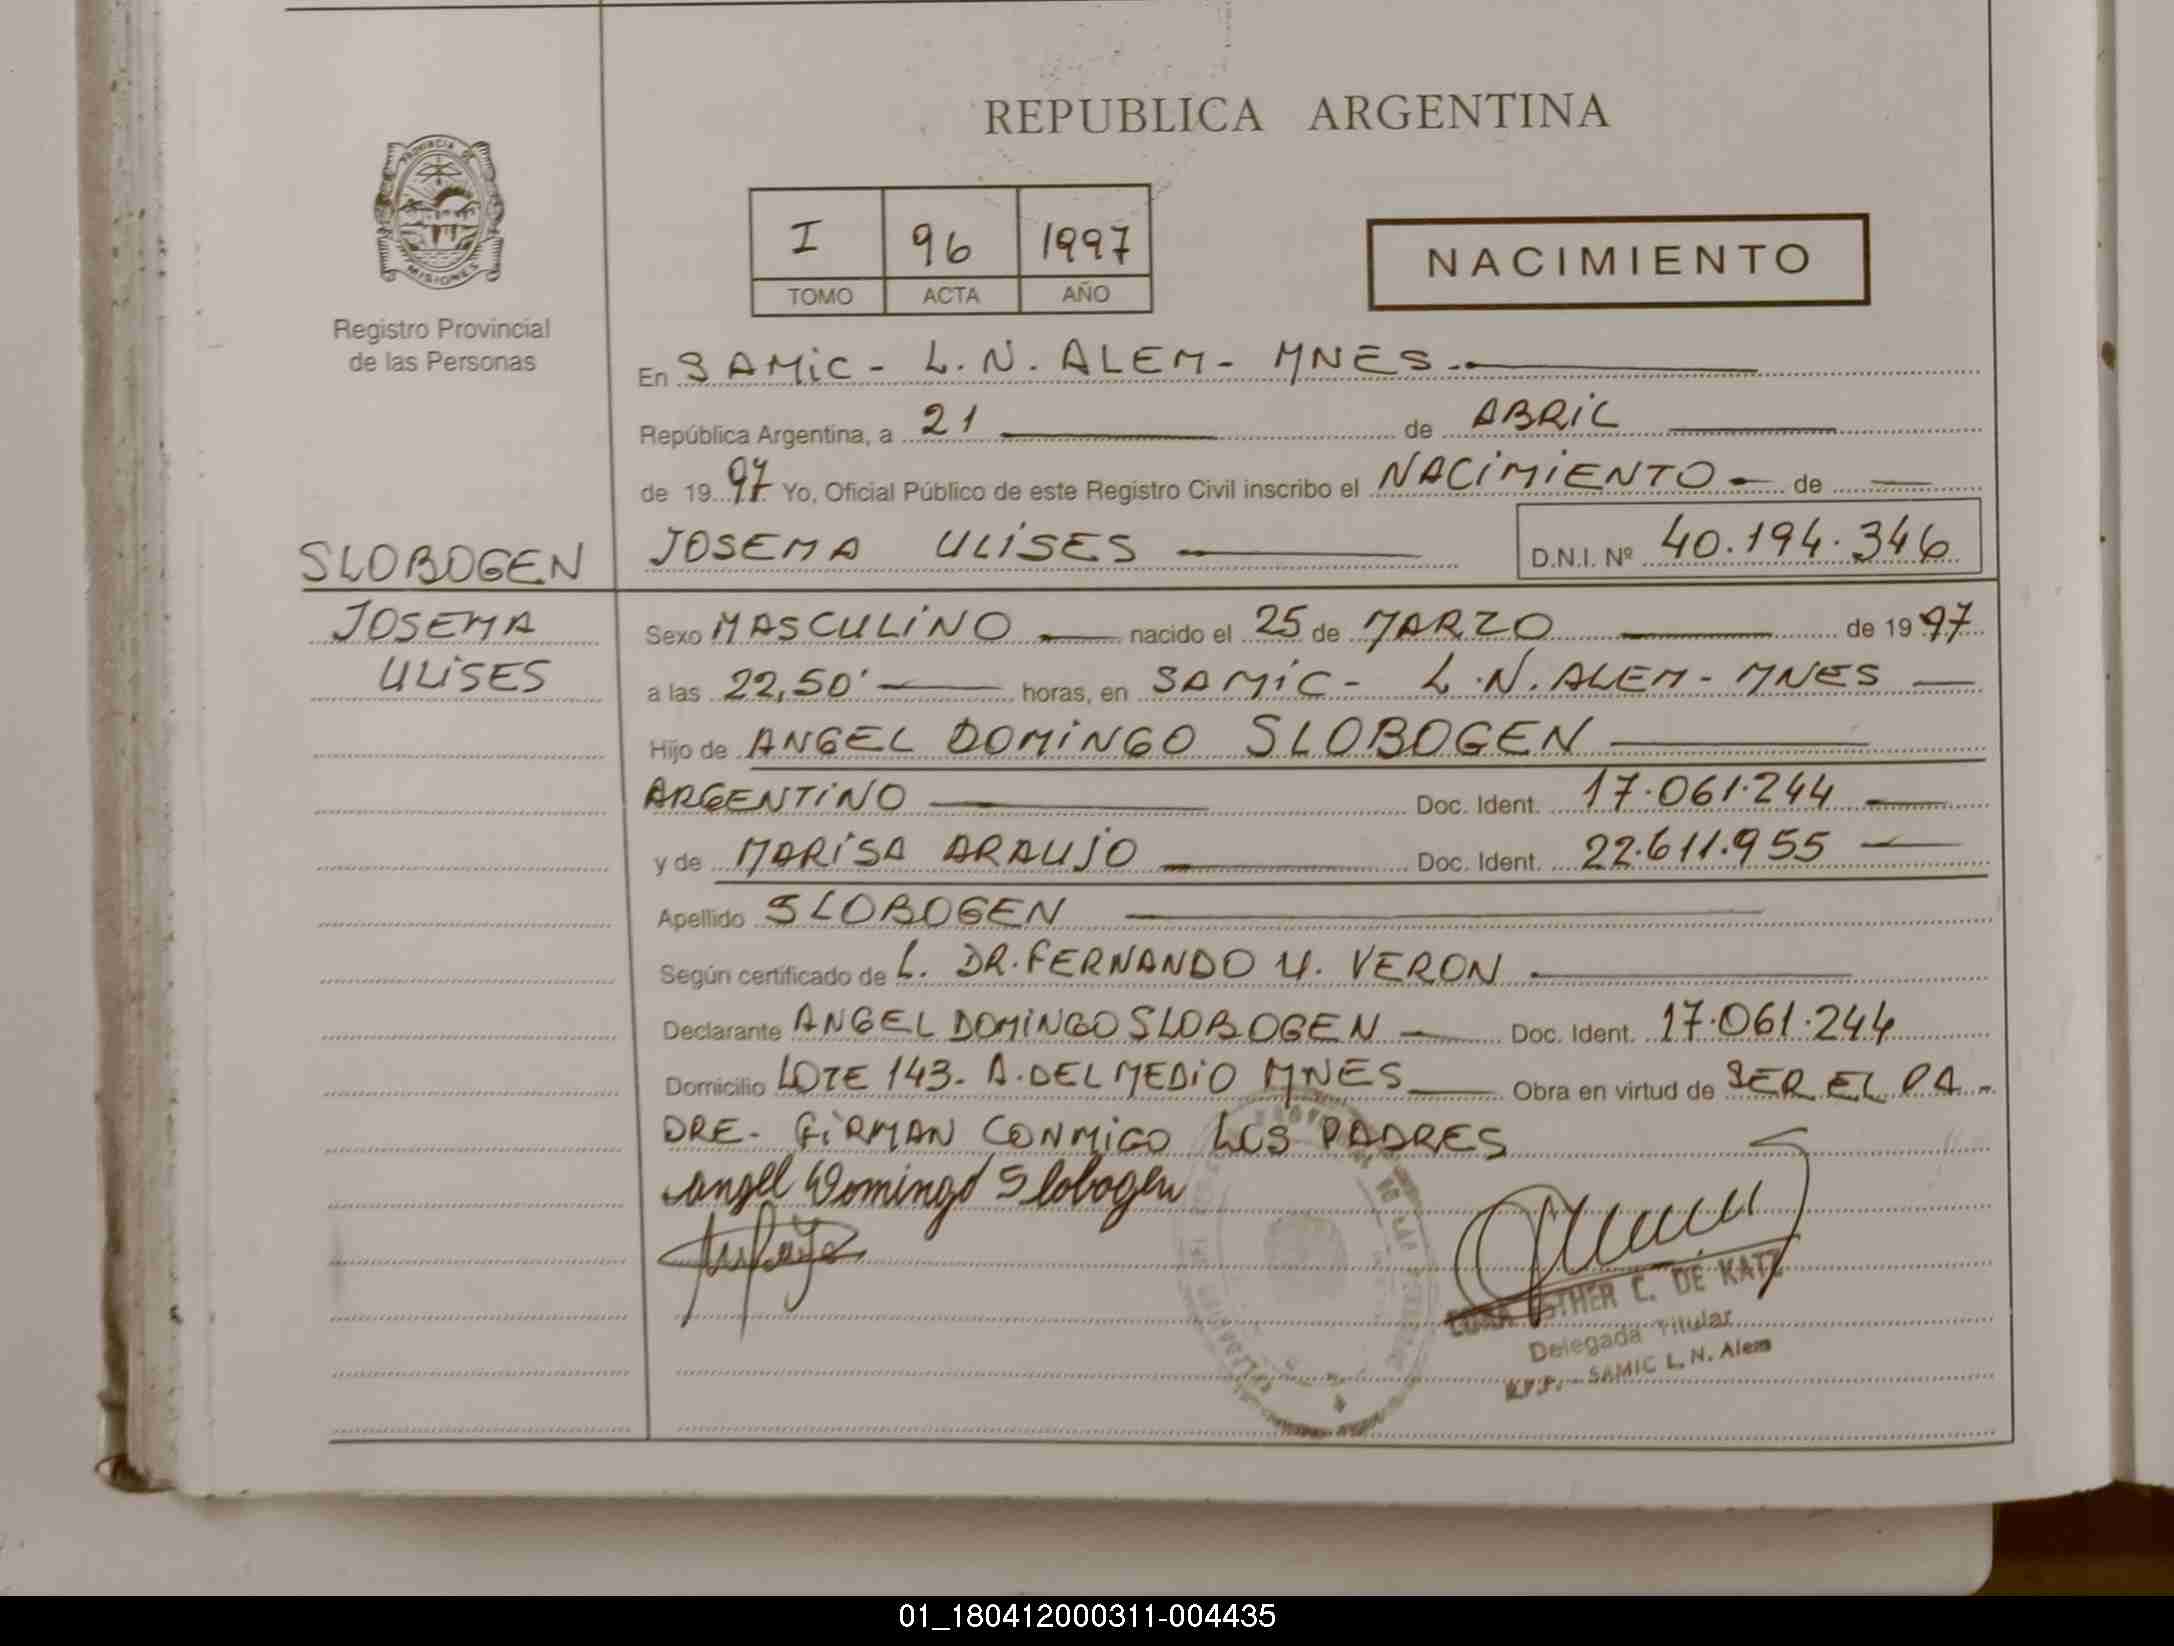 REPUBLICA ARGENTINA
PROVINCIA DE
MISIONES
Registro Provincial
de las Personas
I 96 1997
TOMO ACTA AÑO
NACIMIENTO
En SAMIC - L.N. ALEM - MNES.
República Argentina, a 21 de ABRIL
de 1997 Yo, Oficial Público de este Registro Civil inscribo el NACIMIENTO de
SLOBOGEN
JOSEMA ULISES D.N.I. Nº 40.194.346
JOSEMA
ULISES
Sexo MASCULINO nacido el 25 de MARZO de 1997
a las 22,50' horas, en SAMIC - L.N. ALEM - MNES
Hijo de ANGEL DOMINGO SLOBOGEN
ARGENTINO Doc. Ident. 17.061.244
y de MARISA ARAUJO Doc. Ident. 22.611.955
Apellido SLOBOGEN
Según certificado de L. DR. FERNANDO U. VERON
Declarante ANGEL DOMINGO SLOBOGEN Doc. Ident. 17.061.244
Domicilio LOTE 143 - A. DEL MEDIO MNES Obra en virtud de SER EL PA-
DRE - FIRMAN CONMIGO LOS PADRES
Angel Domingo Slobogen
ESTHER C. DE KATZ
Delegada Titular
SAMIC L. N. Alem
01_180412000311-004435